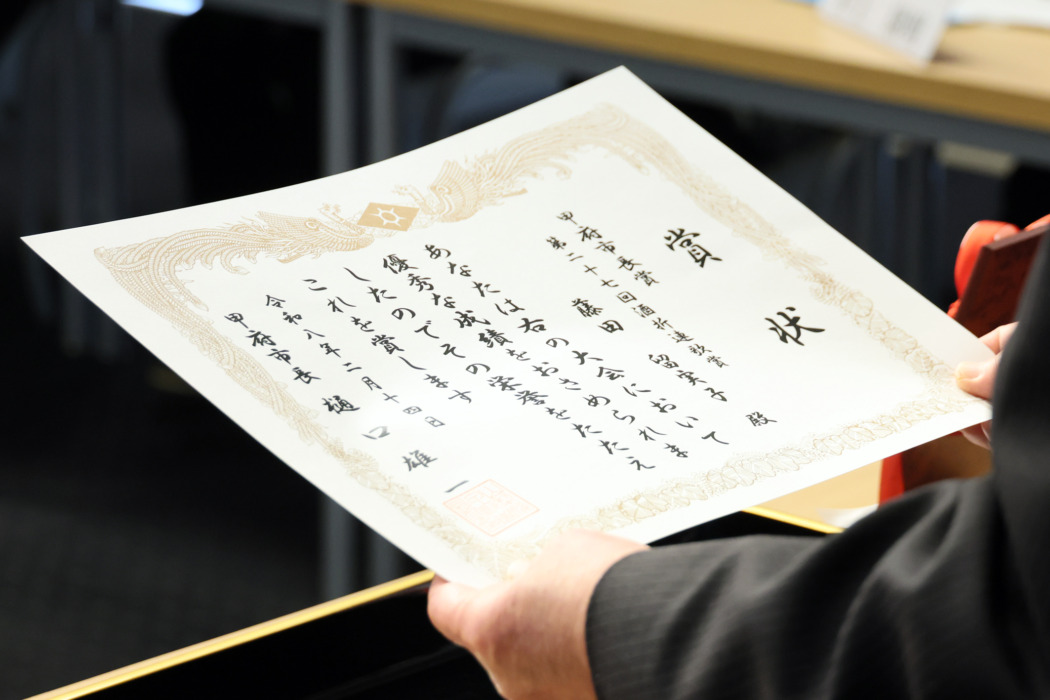 賞状
甲府市長賞
第二十七回酒折連歌賞
藤田 留実子 殿
あなたは右の大会において
優秀な成績をおさめられま
したのでその栄誉をたたえ
これを賞します
令和八年二月十四日
甲府市長 樋口雄一